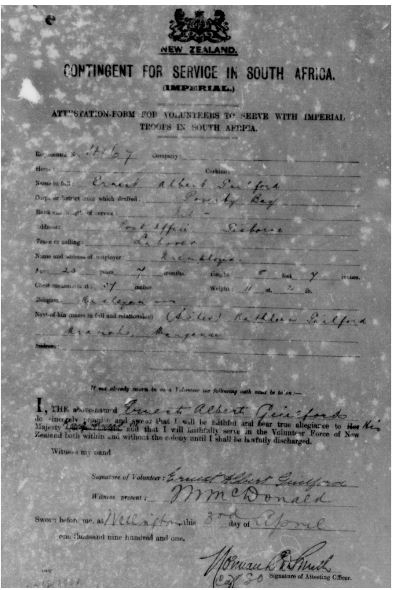 NEW ZEALAND.
CONTINGENT FOR SERVICE IN SOUTH AFRICA.
(IMPERIAL.)
ATTESTATION-FORM FOR VOLUNTEERS TO SERVE WITH IMPERIAL
TROOPS IN SOUTH AFRICA.
Company:
Horse: Carbine:
Name in full: Ernest Albert Guilford
Corps or district from which drafted: Poverty Bay
Rank and length of service: Nil
Address: Post Office Gisborne
Trade or calling: Labourer
Name and address of employer:
Age: 23 years 7 months. Height: 5 feet 7 inches.
Chest measurement: 37 inches Weight: 11
Religion: Wesleyan
Next-of-kin (name in full and relationship): (Sister) Kathleen Guilford
Address:
If not already sworn in as a Volunteer the following oath must be taken:—
I, THE above-named Ernest Albert Guilford
do sincerely promise and swear that I will be faithful and bear true allegiance to Her His
Majesty and that I will faithfully serve in the Volunteer Force of New
Zealand both within and without the colony until I shall be lawfully discharged.
Witness my hand
Signature of Volunteer: Ernest Albert Guilford
Witness present: McDonald
Sworn before me, at Wellington, this 3rd day of April
one thousand nine hundred and one.
Norman Smith
Signature of Attesting Officer.